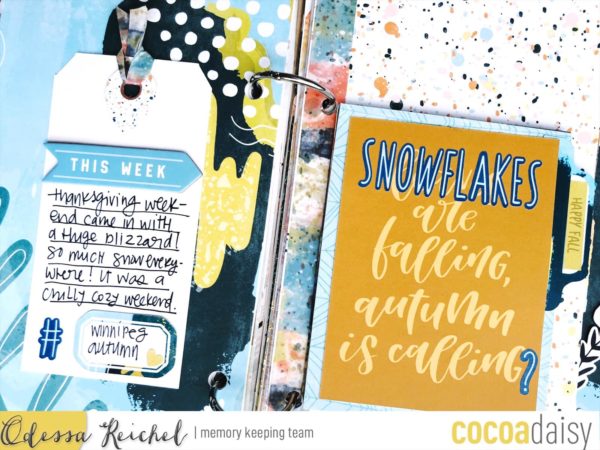 THIS WEEK
thanksgiving week-
end came in with
a huge blizzard!
so much snow every-
where! It was a
chilly cozy weekend.
#
winnipeg
autumn
SNOWFLAKES
are
falling,
autumn
is calling?
HAPPY FALL
Odessa Reichel | memory keeping team
cocoadaisy